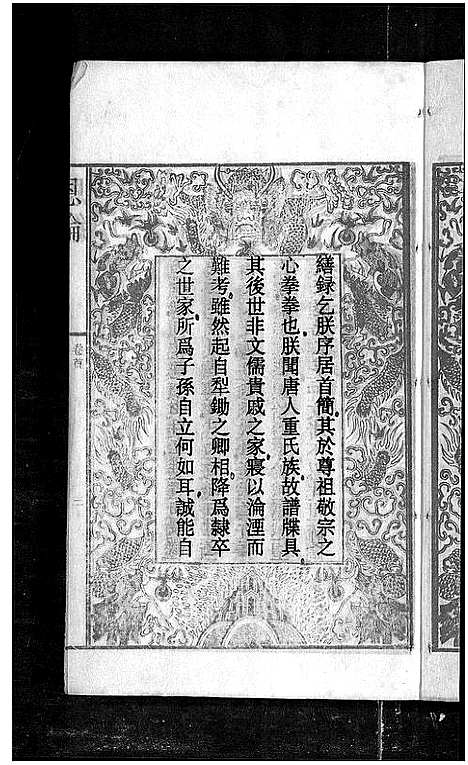 繕録乞朕序居首簡其於尊祖敬宗之
心拳拳也朕聞唐人重氏族故譜牒具
其後世非文儒貴戚之家寢以淪湮而
難考雖然起自犁鋤之卿相降爲隷卒
之世家所爲子孫自立何如耳誠能自
恩綸
卷首
二